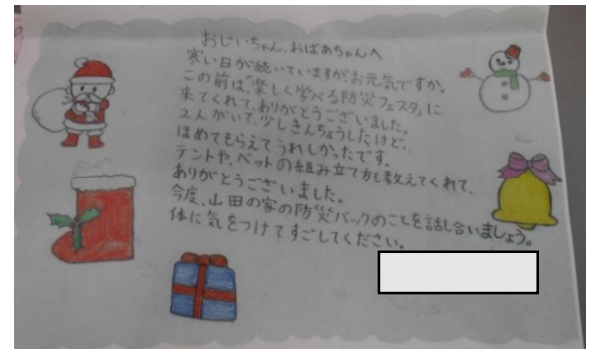 おじいちゃん、おばあちゃんへ
寒い日が続いていますがお元気ですか。
この前は、「楽しく学べる防災フェスタ」に
来てくれて、ありがとうございました。
2人がいて、少しきんちょうしたけど、
ほめてもらえてうれしかったです。
テントや、ベットの組み立て方も教えてくれて、
ありがとうございました。
今度、山田の家の防災バックのことを話し合いましょう。
体に気をつけてすごしてください。